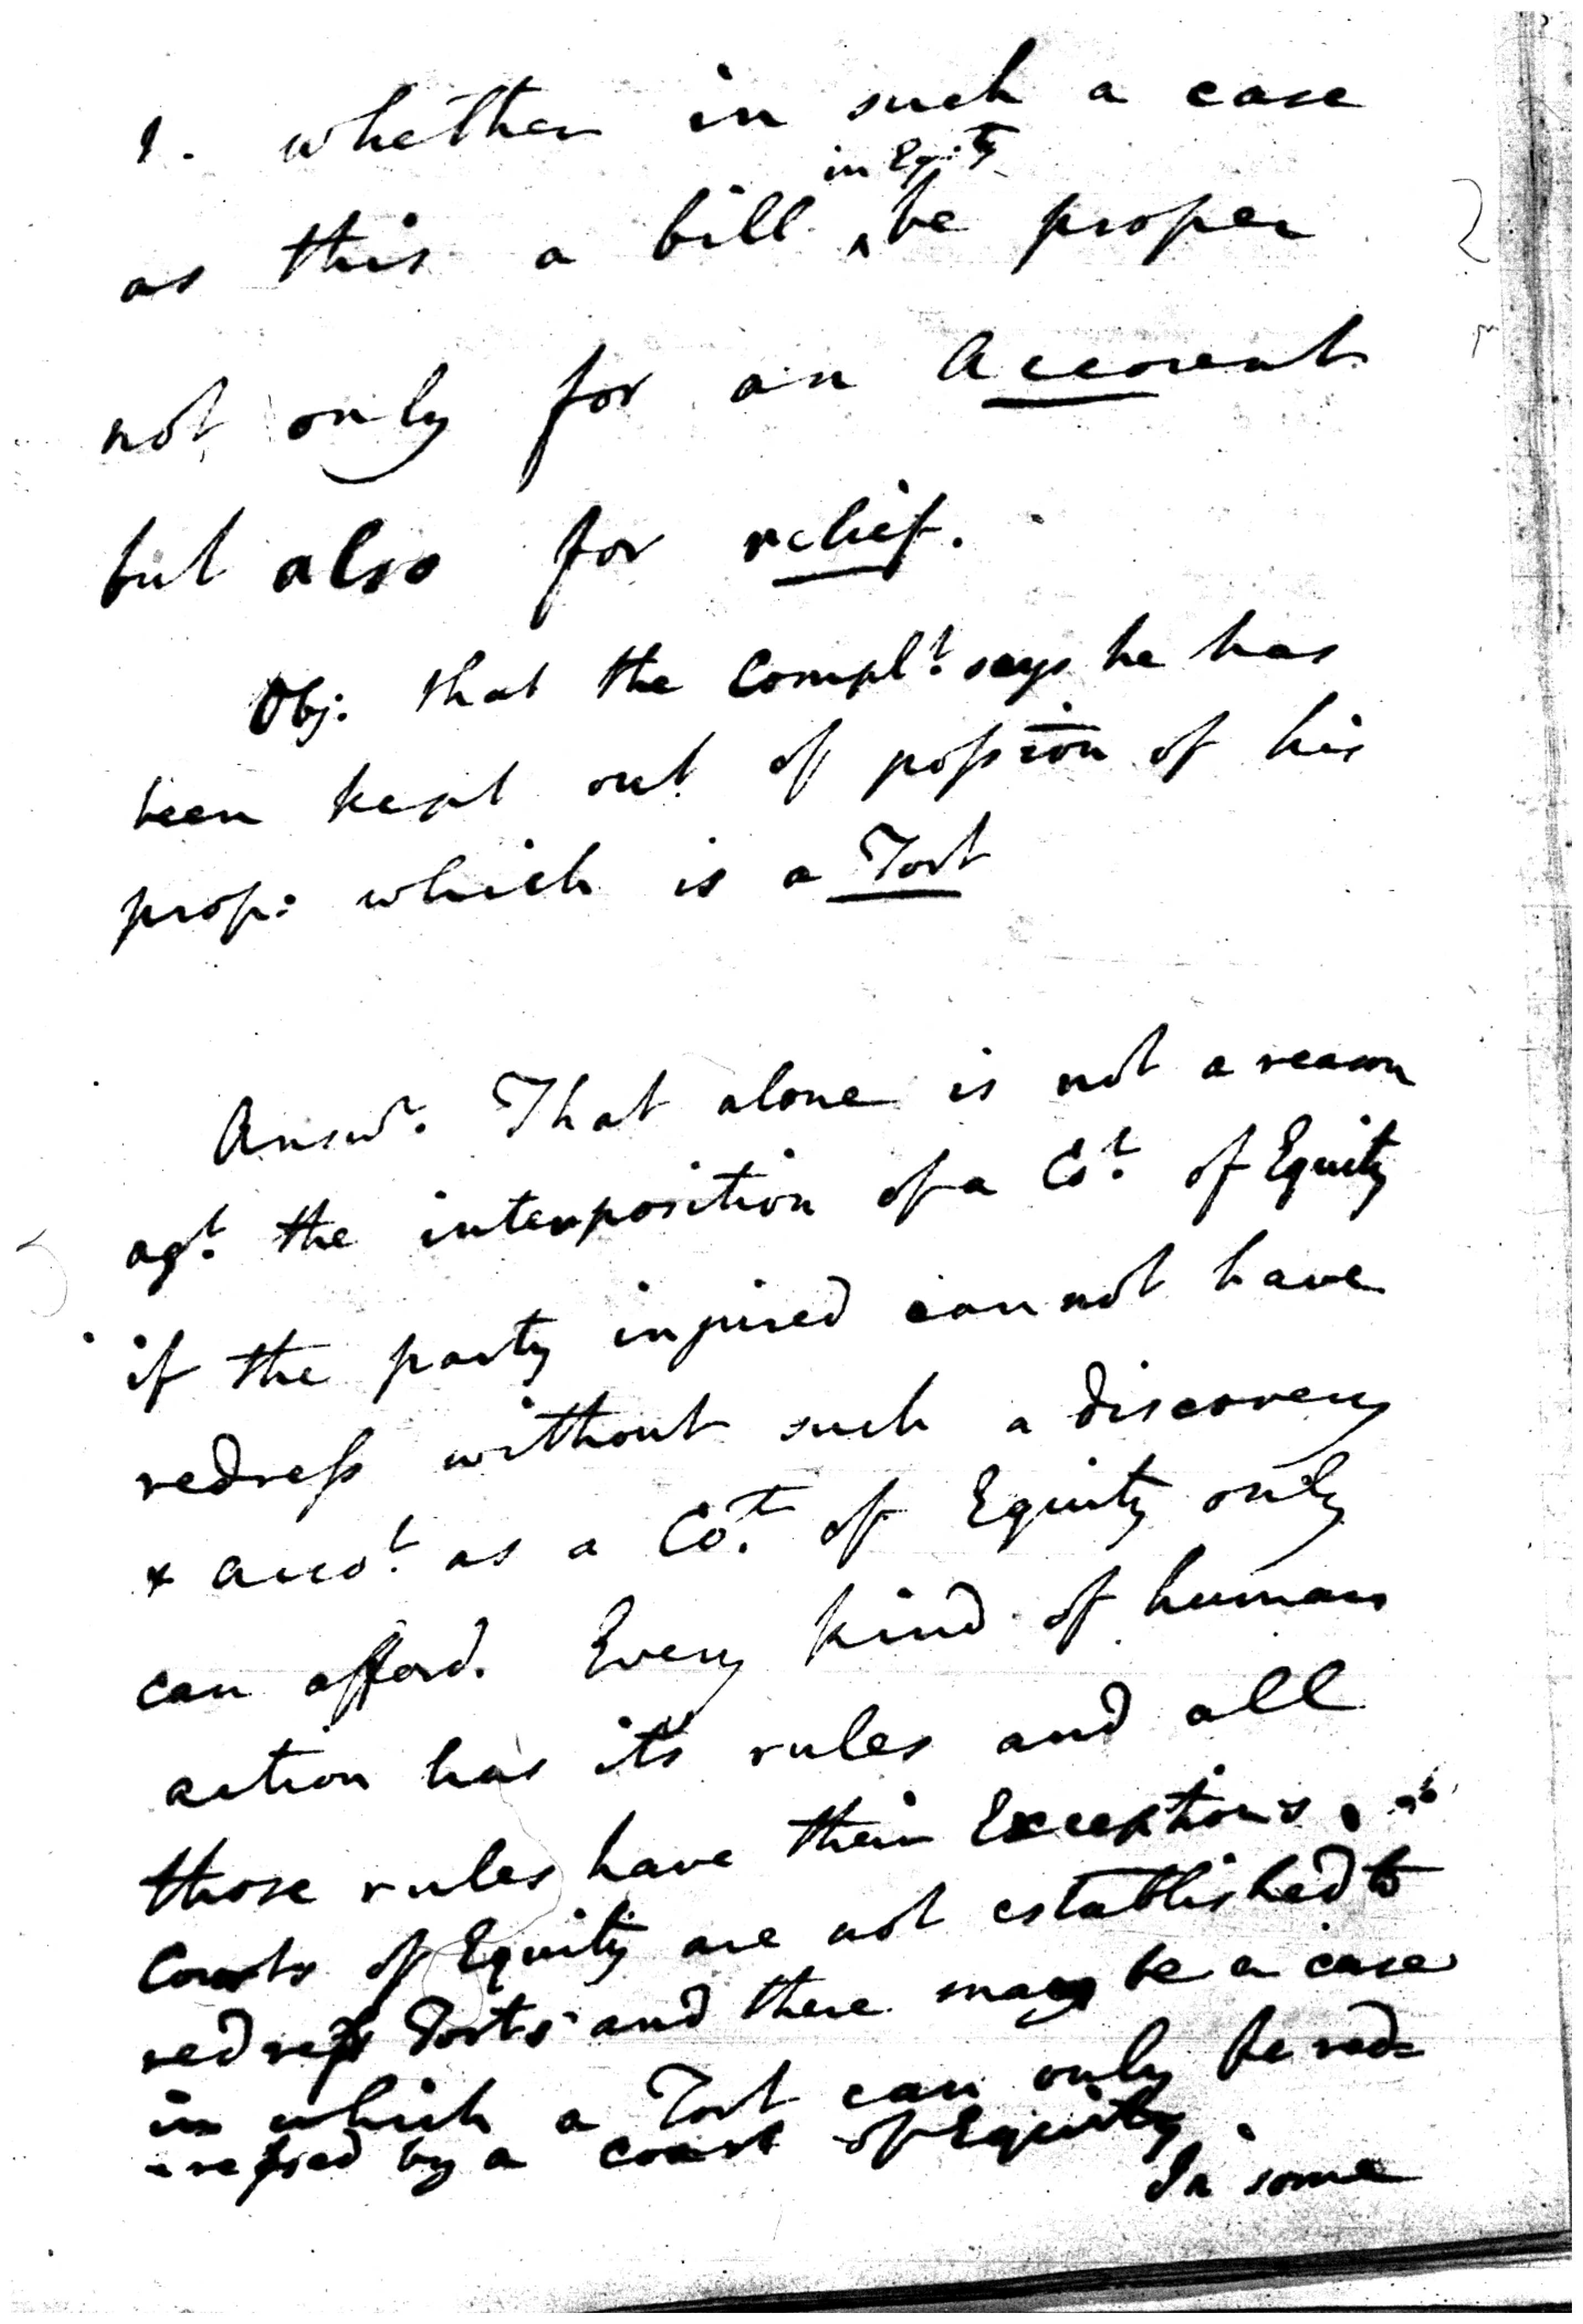 1. whether in such a case
in Equity
as this a bill ‸ be proper
not only for an Account
but also for relief.
Obj: that the Compl.t says he has
been kept out of possion of his
prop: which is a Tort
Answ.r That alone is not a reason
ag.t the interposition of a Co.t of Equity
if the party injured cannot have
redress without such a discovery
& acco.t as a Co.t of Equity only
can afford. Every kind of human
action has it's rules and all
those rules have their Exceptions.
Courts of Equity are not established to
redress Torts and there may be a case
in which a Tort can only be red=
=ressed by a court of Equity.
In some